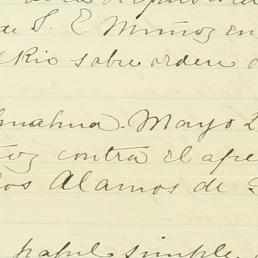 de S. E. Muñoz en
Rio sobre orden
huahua. Mayo 2
ñoz contra el
os Alamos de
papel simple,